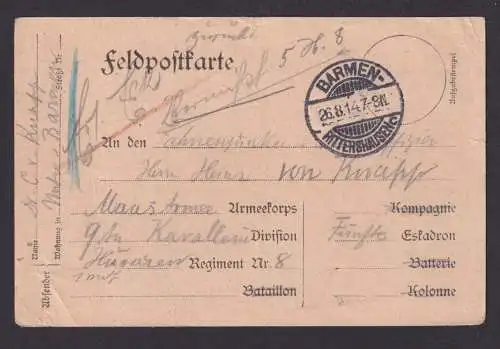 zurück
5 H. 8
Feldpostkarte
vermißt
BARMEN-
26.8.14.7-8N.
RITTERSHAUSEN
Aufgabestempel
An den
Herrn Heinz von Knapp
Maas Armee Armeekorps Kompagnie
9te Kavallerie Division Fünfte Eskadron
Husaren Regiment Nr. 8 Batterie
Bataillon Kolonne
Absender
Name C. v. Knapp
Wohnung in Barmen
Straße Nr.